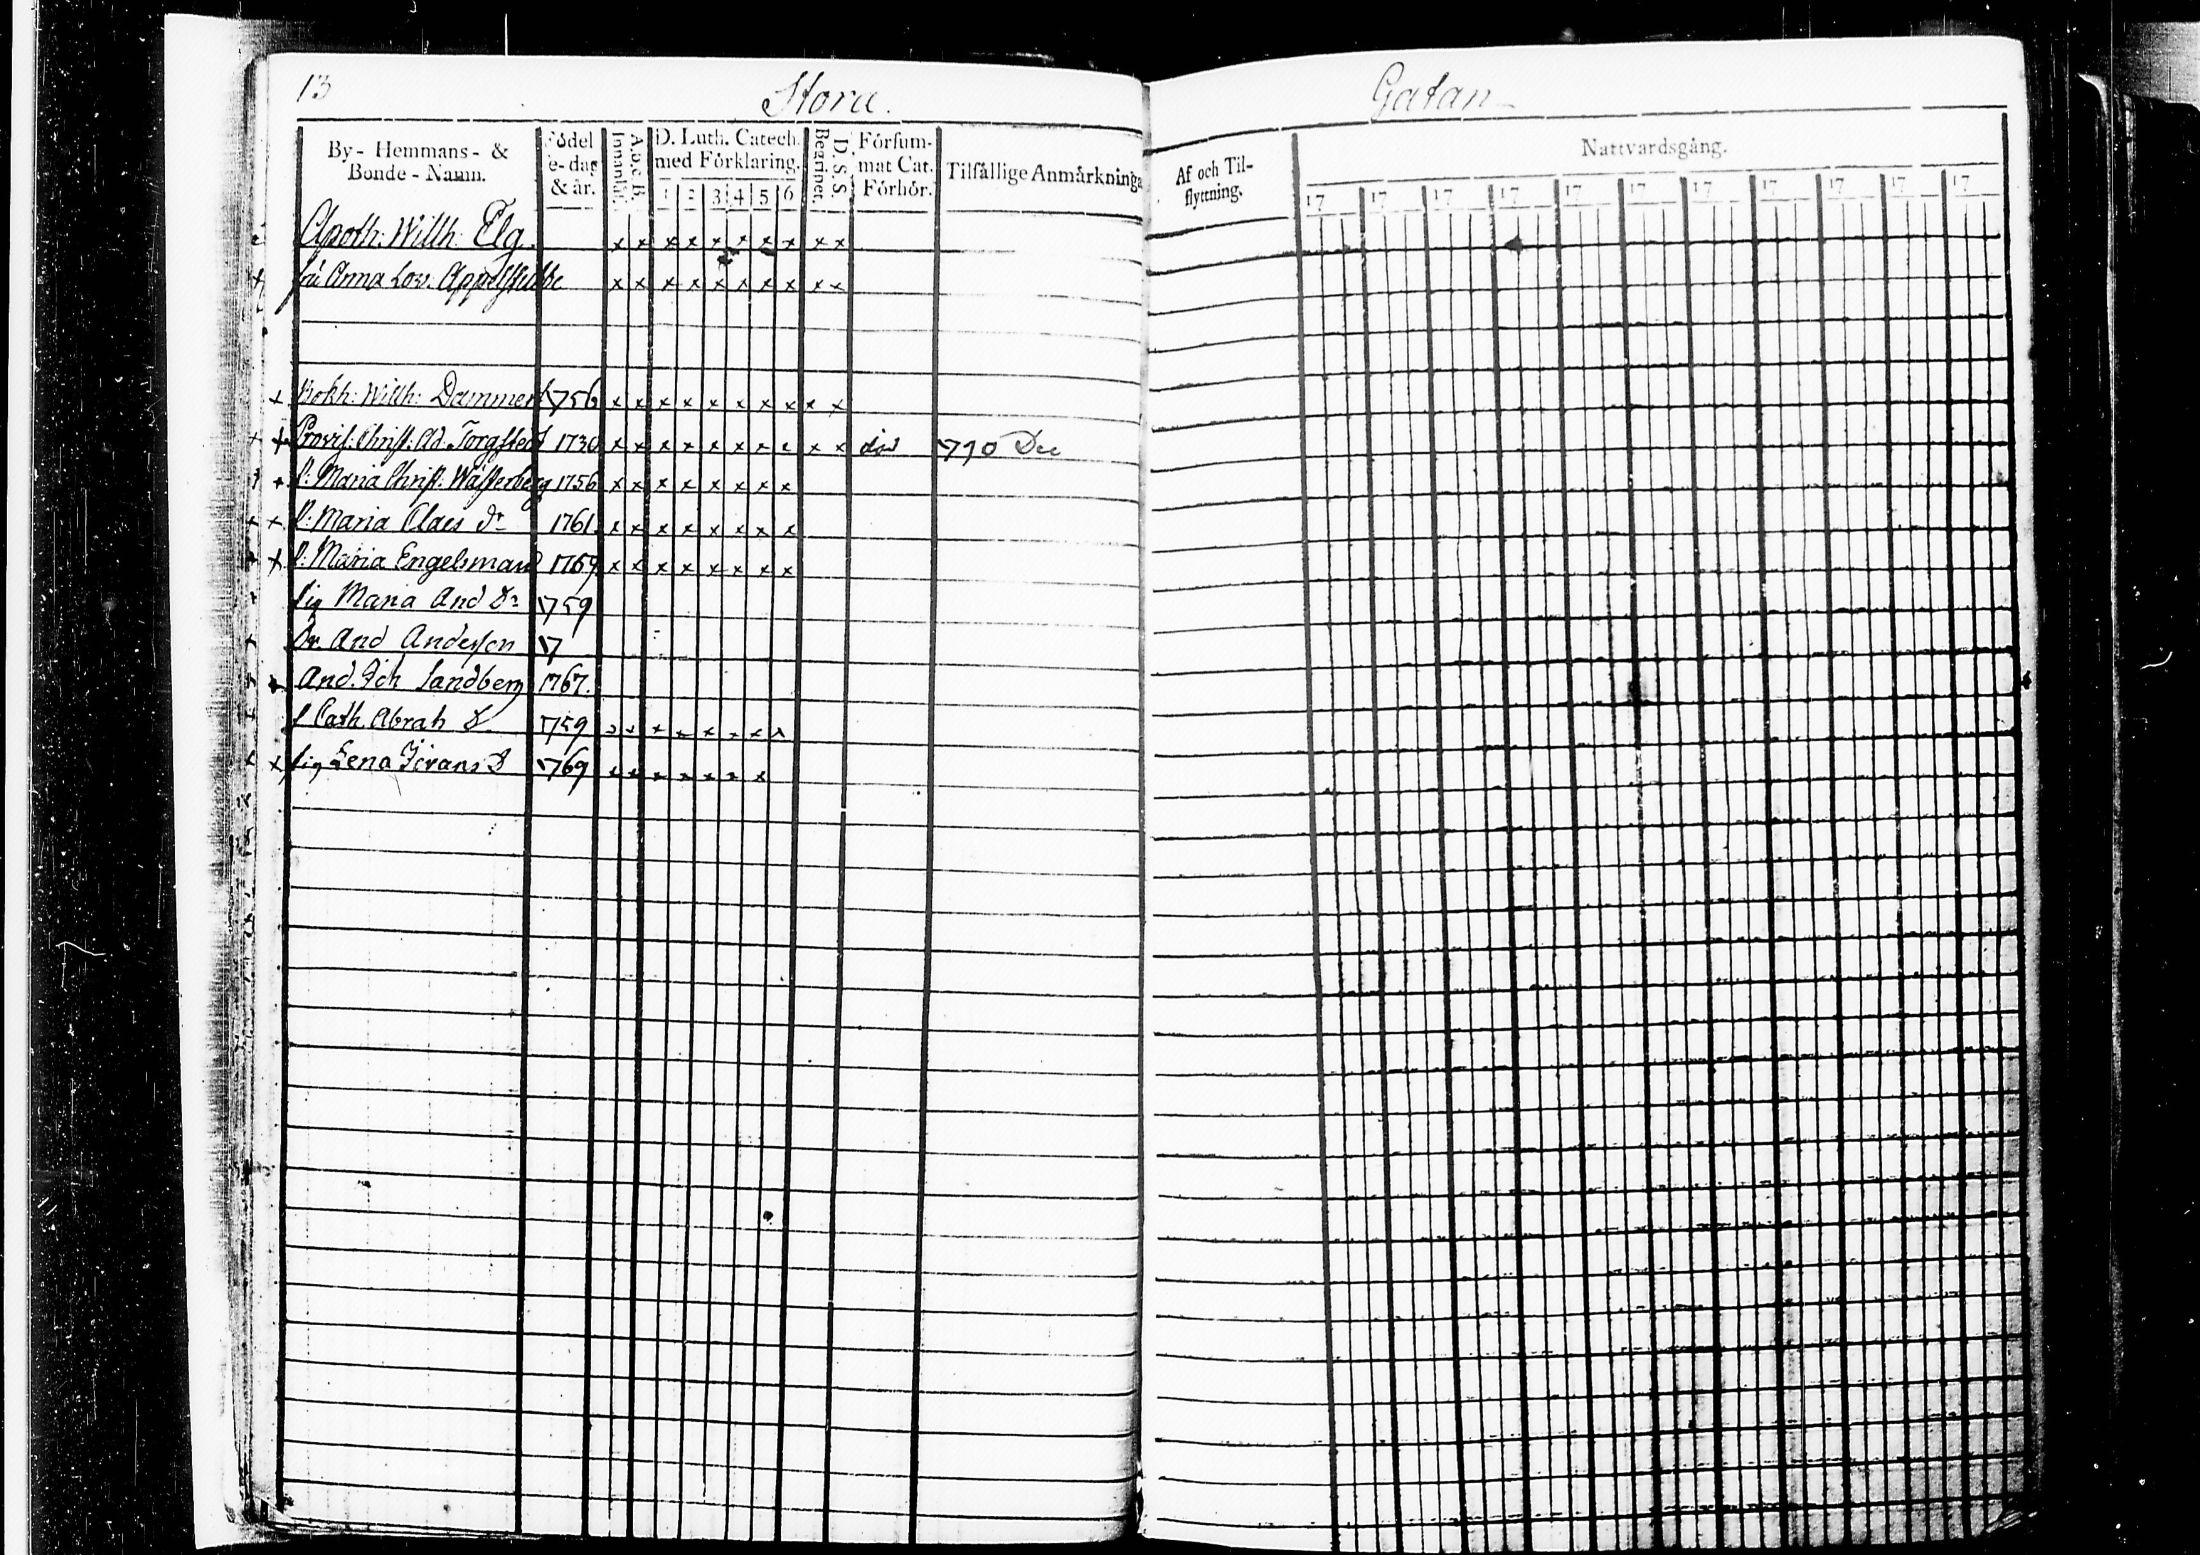 13
Stora.
Gatan
By- Hemmans- & Bonde-Namn.
Födelse-dag & år.
Innanläs.
A.b.c.B.
D. Luth. Catech. med Förklaring.
1 2 3 4 5 6
Begripet.
D. S. S.
Försummat Cat. Förhör.
Tilfällige Anmärkninga
Af och Tilflyttning.
Nattvardsgång.
17 17 17 17 17 17 17 17 17 17 17
Apoth: Wilh: Elg. x x x x x x x x x x
fru Anna Lov. Appelstubbe x x x x x x x x x x
Bokh: Wilh: Dammert 1756 x x x x x x x x x x
Provis: Christ: Ad. Torgsted 1730 x x x x x x x x x x död 1790 Dec
P: Maria Christ: Wasserberg 1756 x x x x x x x x
P: Maria Claes dr 1761. x x x x x x x x
P: Maria Engelsman 1769 x x x x x x x x
Pig Maria And Dr 1759
Dr. And Andersson 17
And. Joh Sandberg 1767.
P Cath. Abrah D. 1759 x x x x x x x x
Pig Lena Jörans D 1769 x x x x x x x